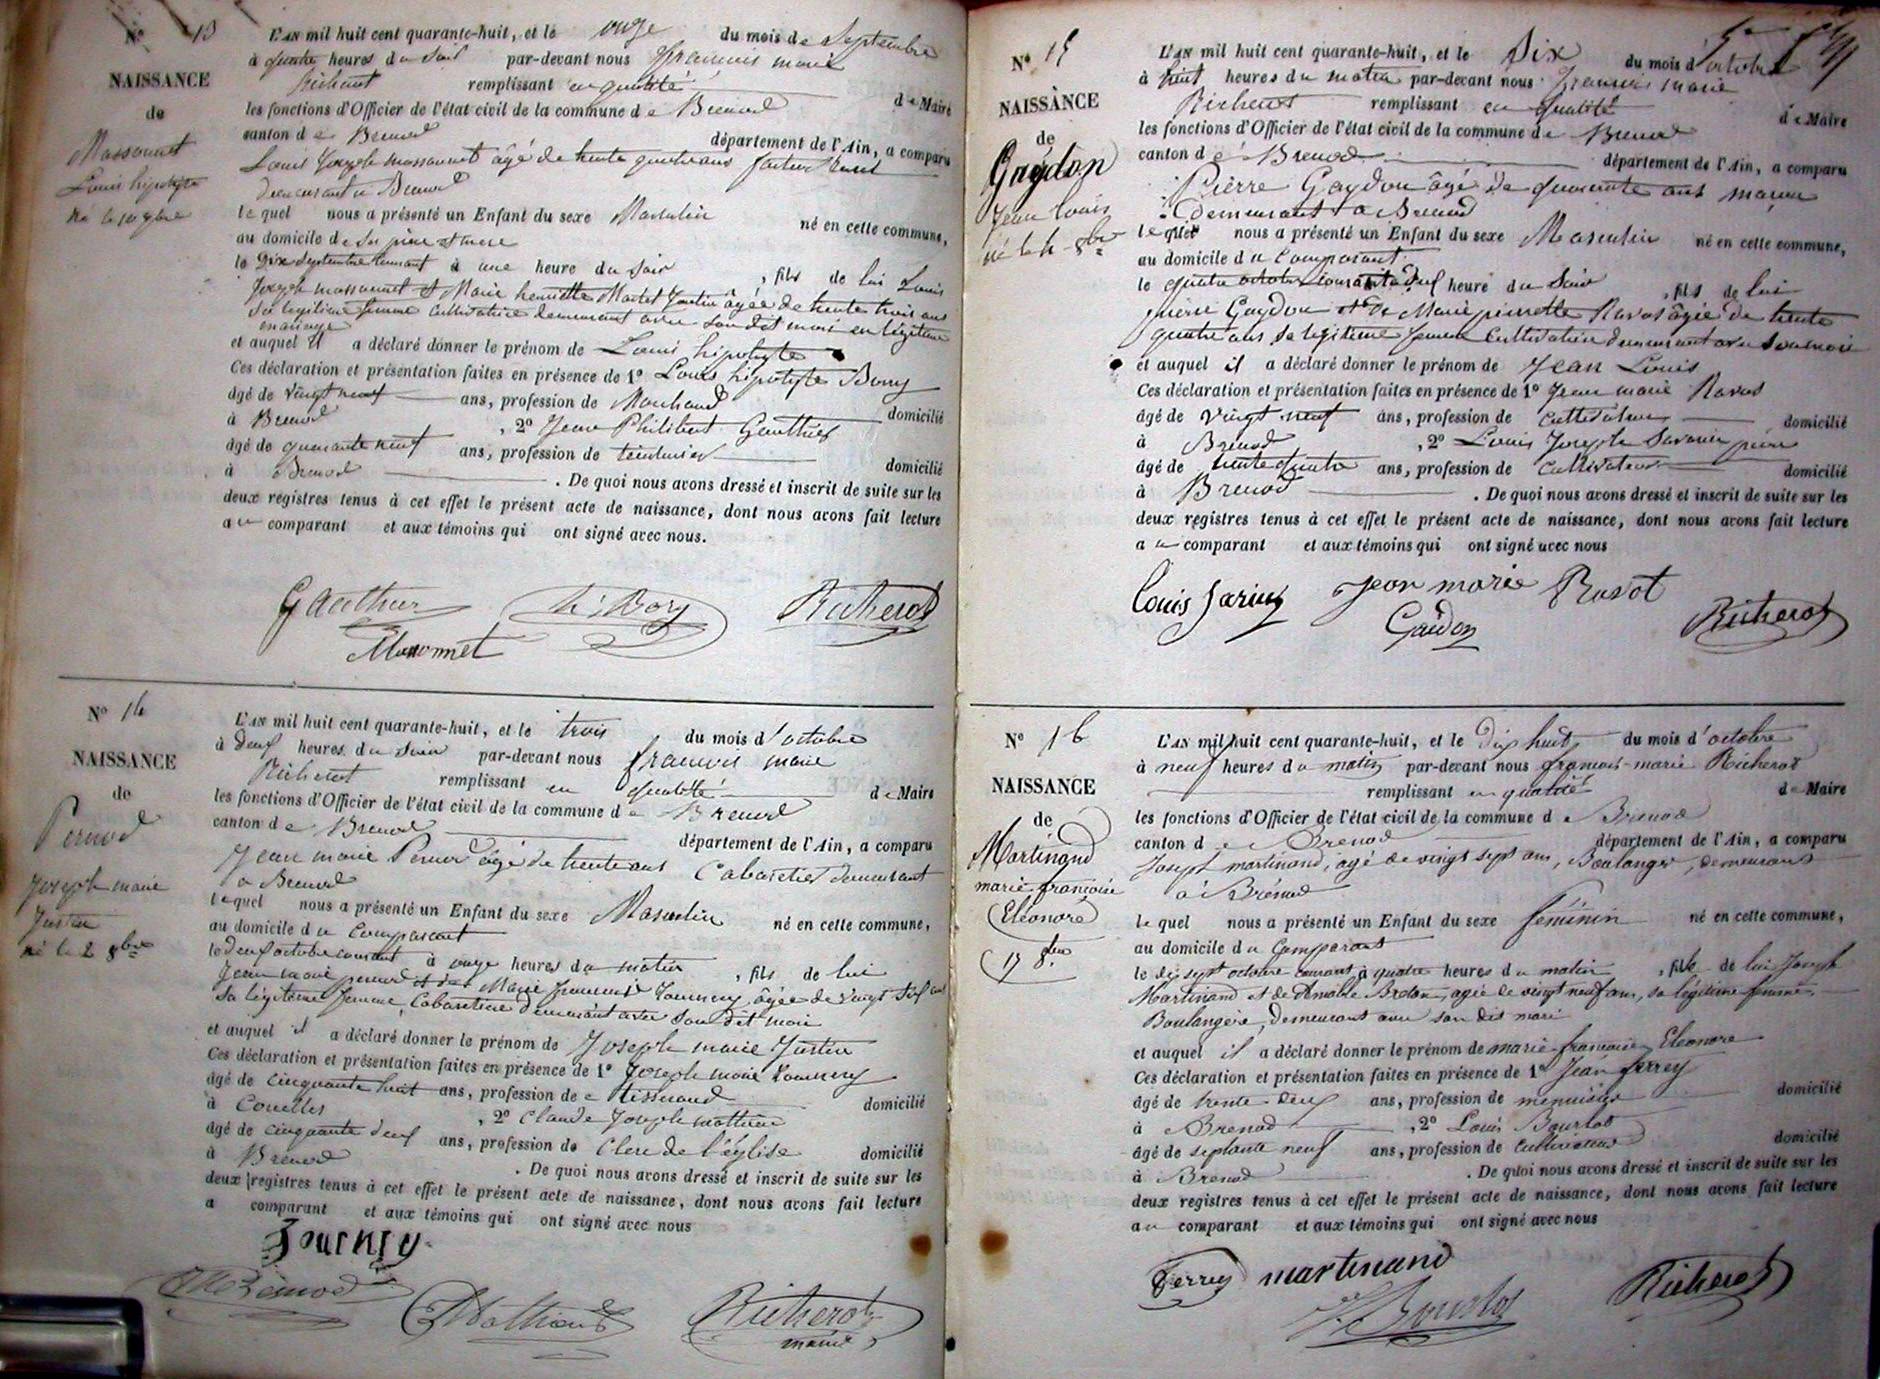 N° 13
NAISSANCE
de
Massonnet
Louis hipolyte
né le 10 7bre
L'AN mil huit cent quarante-huit, et le onze du mois de Septembre
à quatre heures du soir par-devant nous françois marie
Richerot remplissant en qualité de Maire
les fonctions d'Officier de l'état civil de la commune de Brenod
canton de Brenod département de l'Ain, a comparu
Louis Joseph massonnet âgé de trente quatre ans
demeurant à Brenod
lequel nous a présenté un Enfant du sexe Masculin né en cette commune,
au domicile de ses père et mere
le Dix Septembre courant à une heure du soir, fils de lui Louis
Joseph massonnet et Marie henriette Martel âgée de trente trois ans
sa legitime femme cultivatrice demeurant avec son dit mari en légitime
mariage
et auquel il a déclaré donner le prénom de Louis hipolyte
Ces déclaration et présentation faites en présence de 1° Louis hipolyte Bory
âgé de vingt neuf ans, profession de Marchand domicilié
à Brenod, 2° Jean Philibert Gauthier
âgé de quarante neuf ans, profession de teinturier domicilié
à Brenod. De quoi nous avons dressé et inscrit de suite sur les
deux registres tenus à cet effet le présent acte de naissance, dont nous avons fait lecture
au comparant et aux témoins qui ont signé avec nous.
Gauthier Bory Richerot
Massonnet
N° 14
NAISSANCE
de
Pernod
Joseph marie
Justin
né le 2 8bre
L'AN mil huit cent quarante-huit, et le trois du mois d'octobre
à deux heures du soir par-devant nous françois marie
Richerot remplissant en qualité de Maire
les fonctions d'Officier de l'état civil de la commune de Brenod
canton de Brenod département de l'Ain, a comparu
Jean marie Pernod âgé de trente ans Cabaretier demeurant
à Brenod
lequel nous a présenté un Enfant du sexe Masculin né en cette commune,
au domicile du Comparant
le deux octobre courant à onze heures du matin, fils de lui
Jean marie pernod et de Marie âgée de vingt ans
sa légitime femme, Cabaretiere demeurant avec son dit mari
et auquel il a déclaré donner le prénom de Joseph marie Justin
Ces déclaration et présentation faites en présence de 1° Joseph marie
âgé de cinquante huit ans, profession de tisserand domicilié
à, 2° Claude Joseph mathieu
âgé de cinquante deux ans, profession de Clerc de l'église domicilié
à Brenod. De quoi nous avons dressé et inscrit de suite sur les
deux registres tenus à cet effet le présent acte de naissance, dont nous avons fait lecture
a comparant et aux témoins qui ont signé avec nous
Mathieu Richerot
maire
N° 15
NAISSANCE
de
Gaydon
Jean louis
né le 4 8bre
L'AN mil huit cent quarante-huit, et le Six du mois d'octobre
à huit heures du matin par-devant nous françois marie
Richerot remplissant en qualité de Maire
les fonctions d'Officier de l'état civil de la commune de Brenod
canton de Brenod département de l'Ain, a comparu
Pierre Gaydon âgé de quarante ans maçon
demeurant à Brenod
lequel nous a présenté un Enfant du sexe Masculin né en cette commune,
au domicile du Comparant
le quatre octobre courant à heure du soir, fils de lui
pierre Gaydon et de Marie pierrette Ravot âgée de trente
quatre ans sa legitime femme Cultivatrice demeurant avec son mari
et auquel il a déclaré donner le prénom de Jean Louis
Ces déclaration et présentation faites en présence de 1° Jean marie Ravot
âgé de vingt neuf ans, profession de cultivateur domicilié
à Brenod, 2° Louis Joseph Savarin
âgé de trente quatre ans, profession de cultivateur domicilié
à Brenod. De quoi nous avons dressé et inscrit de suite sur les
deux registres tenus à cet effet le présent acte de naissance, dont nous avons fait lecture
au comparant et aux témoins qui ont signé avec nous
Jean marie Ravot
Gaidon Richerot
N° 16
NAISSANCE
de
Martinand
marie françoise
Eléonore
17 8bre
L'AN mil huit cent quarante-huit, et le dix huit du mois d'octobre
à neuf heures du matin par-devant nous françois-marie Richerot
remplissant en qualité de Maire
les fonctions d'Officier de l'état civil de la commune de Brenod
canton de Brenod département de l'Ain, a comparu
Joseph martinand, âgé de vingt sept ans, Boulanger, demeurant
à Brénod
lequel nous a présenté un Enfant du sexe féminin né en cette commune,
au domicile du Comparant
le dix sept octobre courant à quatre heures du matin, fille de lui Joseph
Martinand et de Amable Breton, agée de vingt neuf ans, sa légitime femme,
Boulangère, demeurant avec son dit mari
et auquel il a déclaré donner le prénom de marie françoise Eléonore
Ces déclaration et présentation faites en présence de 1° Jean ferrey
âgé de trente deux ans, profession de menuisier domicilié
à Brenod, 2° Louis Bourlot
âgé de septante neuf ans, profession de Cultivateur domicilié
à Brenod. De quoi nous avons dressé et inscrit de suite sur les
deux registres tenus à cet effet le présent acte de naissance, dont nous avons fait lecture
au comparant et aux témoins qui ont signé avec nous
ferrey martinand
Bourlot Richerot